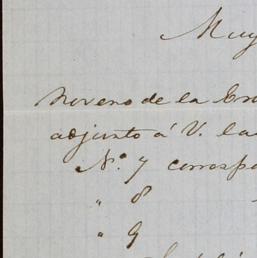 Muy
Noveno de la
adjunto á V. las
N.º 7 corresp
" 8
" 9